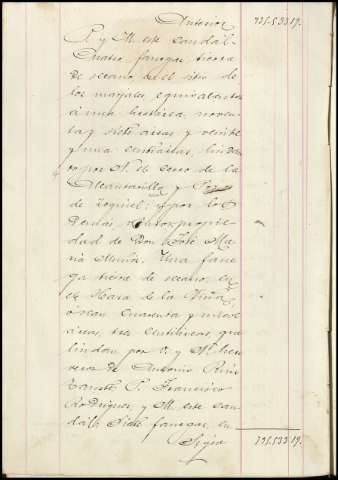 Anterior 735.533 19.
P. y M. este caudal.
Cuatro fanegas tierra
de secano, en el sitio de
los mayales, equivalentes
á una hectárea, noven
ta y siete areas y veinte
y una centiáreas, lindan
por N. el cerro de la
Alcantarilla y
de Zoquiel; y por los
demás, olivos propie
dad de Don José Ma
ria Muñiz. Una fane
ga tierra de secano, en
la Haza de la Viña
ó sean cuarenta y nueve
áreas, tres centiáreas, que
lindan por O. y N. here
deros de Antonio Ruiz
P. Francisco
Rodriguez, y M. este cau
dal. Siete fanegas, en
Sigue 735.533 19.